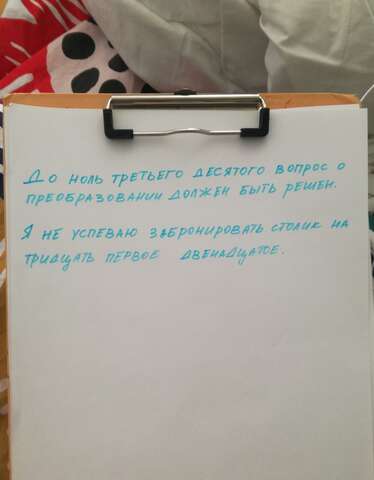 До ноль третьего десятого вопрос о
преобразовании должен быть решен.
Я не успеваю забронировать столик на
тридцать первое двенадцатое.